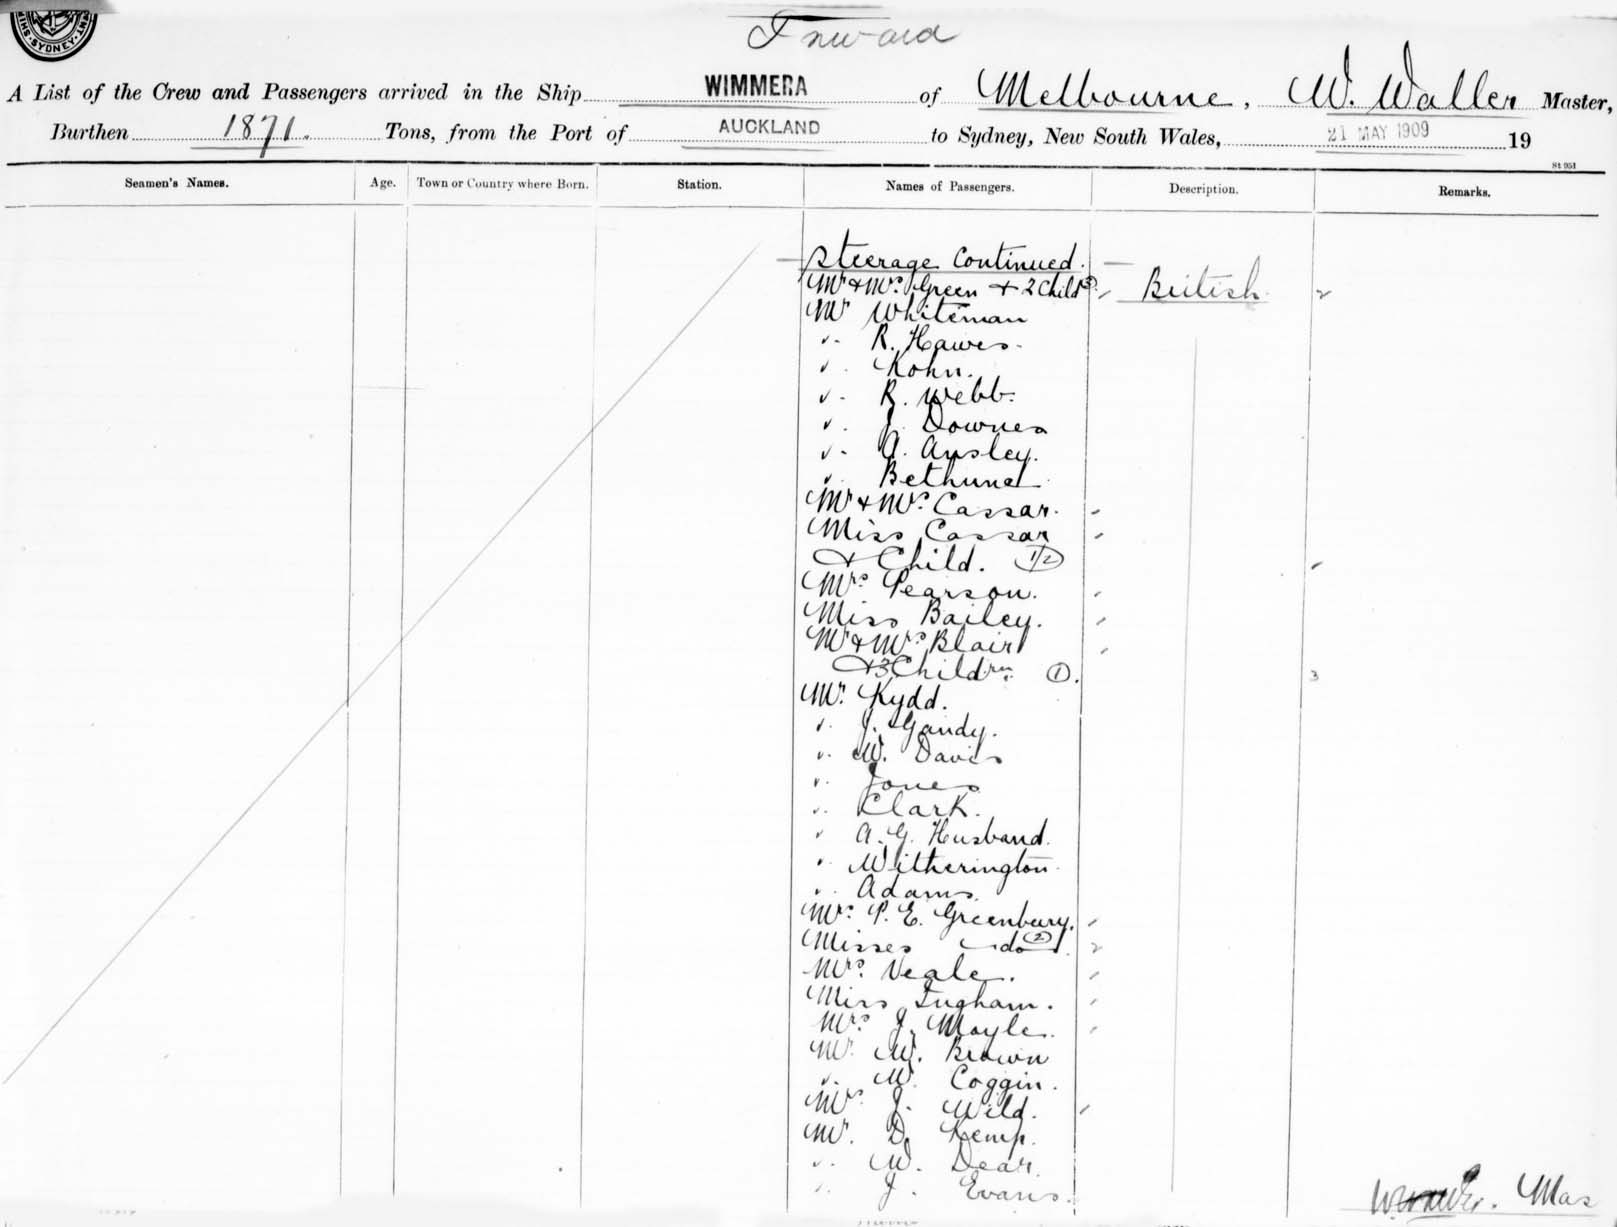 SYDNEY
Inward
A List of the Crew and Passengers arrived in the Ship WIMMERA of Melbourne, W. Waller Master,
Burthen 1871. Tons, from the Port of AUCKLAND to Sydney, New South Wales, 21 MAY 1909 19
St 951
Seamen's Names. Age. Town or Country where Born. Station. Names of Passengers. Description. Remarks.
Steerage Continued.
Mr & Mrs Green & 2 Childn British 2
Mr Whiteman
" R. Hawes.
" Kohn.
" R. Webb.
" J. Downes
" A. Ansley.
" Bethune
Mr & Mrs Cassar.
Miss Cassar
& Child. 1/2
Mrs Pearson.
Miss Bailey.
Mr & Mrs Blair
& 3 Childrn 1. 3
Mr. Kydd.
" J. Gandy.
" W. Davis
" Jones
" Clark.
" A. G. Husband.
" Witherington
" Adams.
Mrs. P. E. Greenbury.
Misses do 2 2
Mrs. Veale.
Miss Ingham.
Mrs. J. Moyle.
Mr. W. Brown
" W. Coggin.
Mrs J. Wild.
Mr. D. Kemp.
" W. Dear.
" J. Evans.
Mas